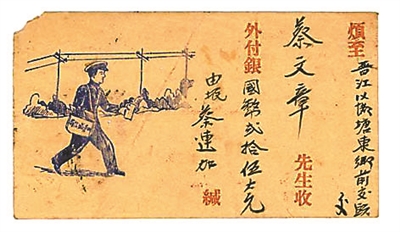 煩至 晋江塘東鄉前 交
蔡文章 先生收
外付銀 國幣弍拾伍大元
由岷 蔡連加 緘